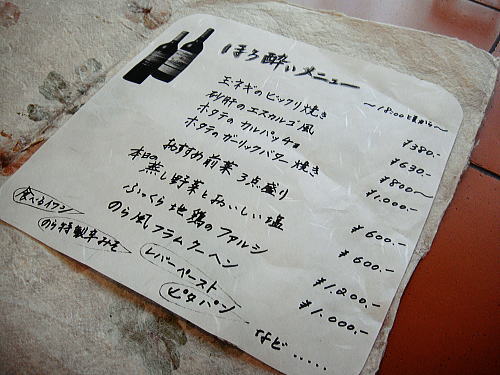 ほろ酔いメニュー
〜18:00頃から〜
玉ネギのビックリ焼き ¥380.-
砂肝のエスカルゴ風 ¥630.-
ホタテのカルパッチョ ¥800〜
ホタテのガーリックバター焼き ¥1.000.-
おすすめ前菜3点盛り
本日の蒸し野菜とおいしい塩 ¥600.-
ふっくら地鶏のファルシ ¥600.-
のら風フラムクーヘン ¥1.200.-
¥1.000.-
食べるイワシ
のら特製辛みそ
レバーペースト
ピタパン
など・・・・・